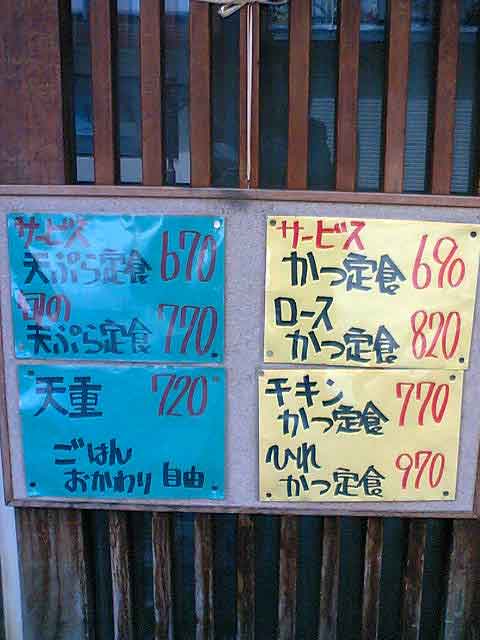 サービス
天ぷら定食 670
旬の
天ぷら定食 770
天重 720
ごはん
おかわり自由
サービス
かつ定食 690
ロース
かつ定食 820
チキン
かつ定食 770
ひれ
かつ定食 970